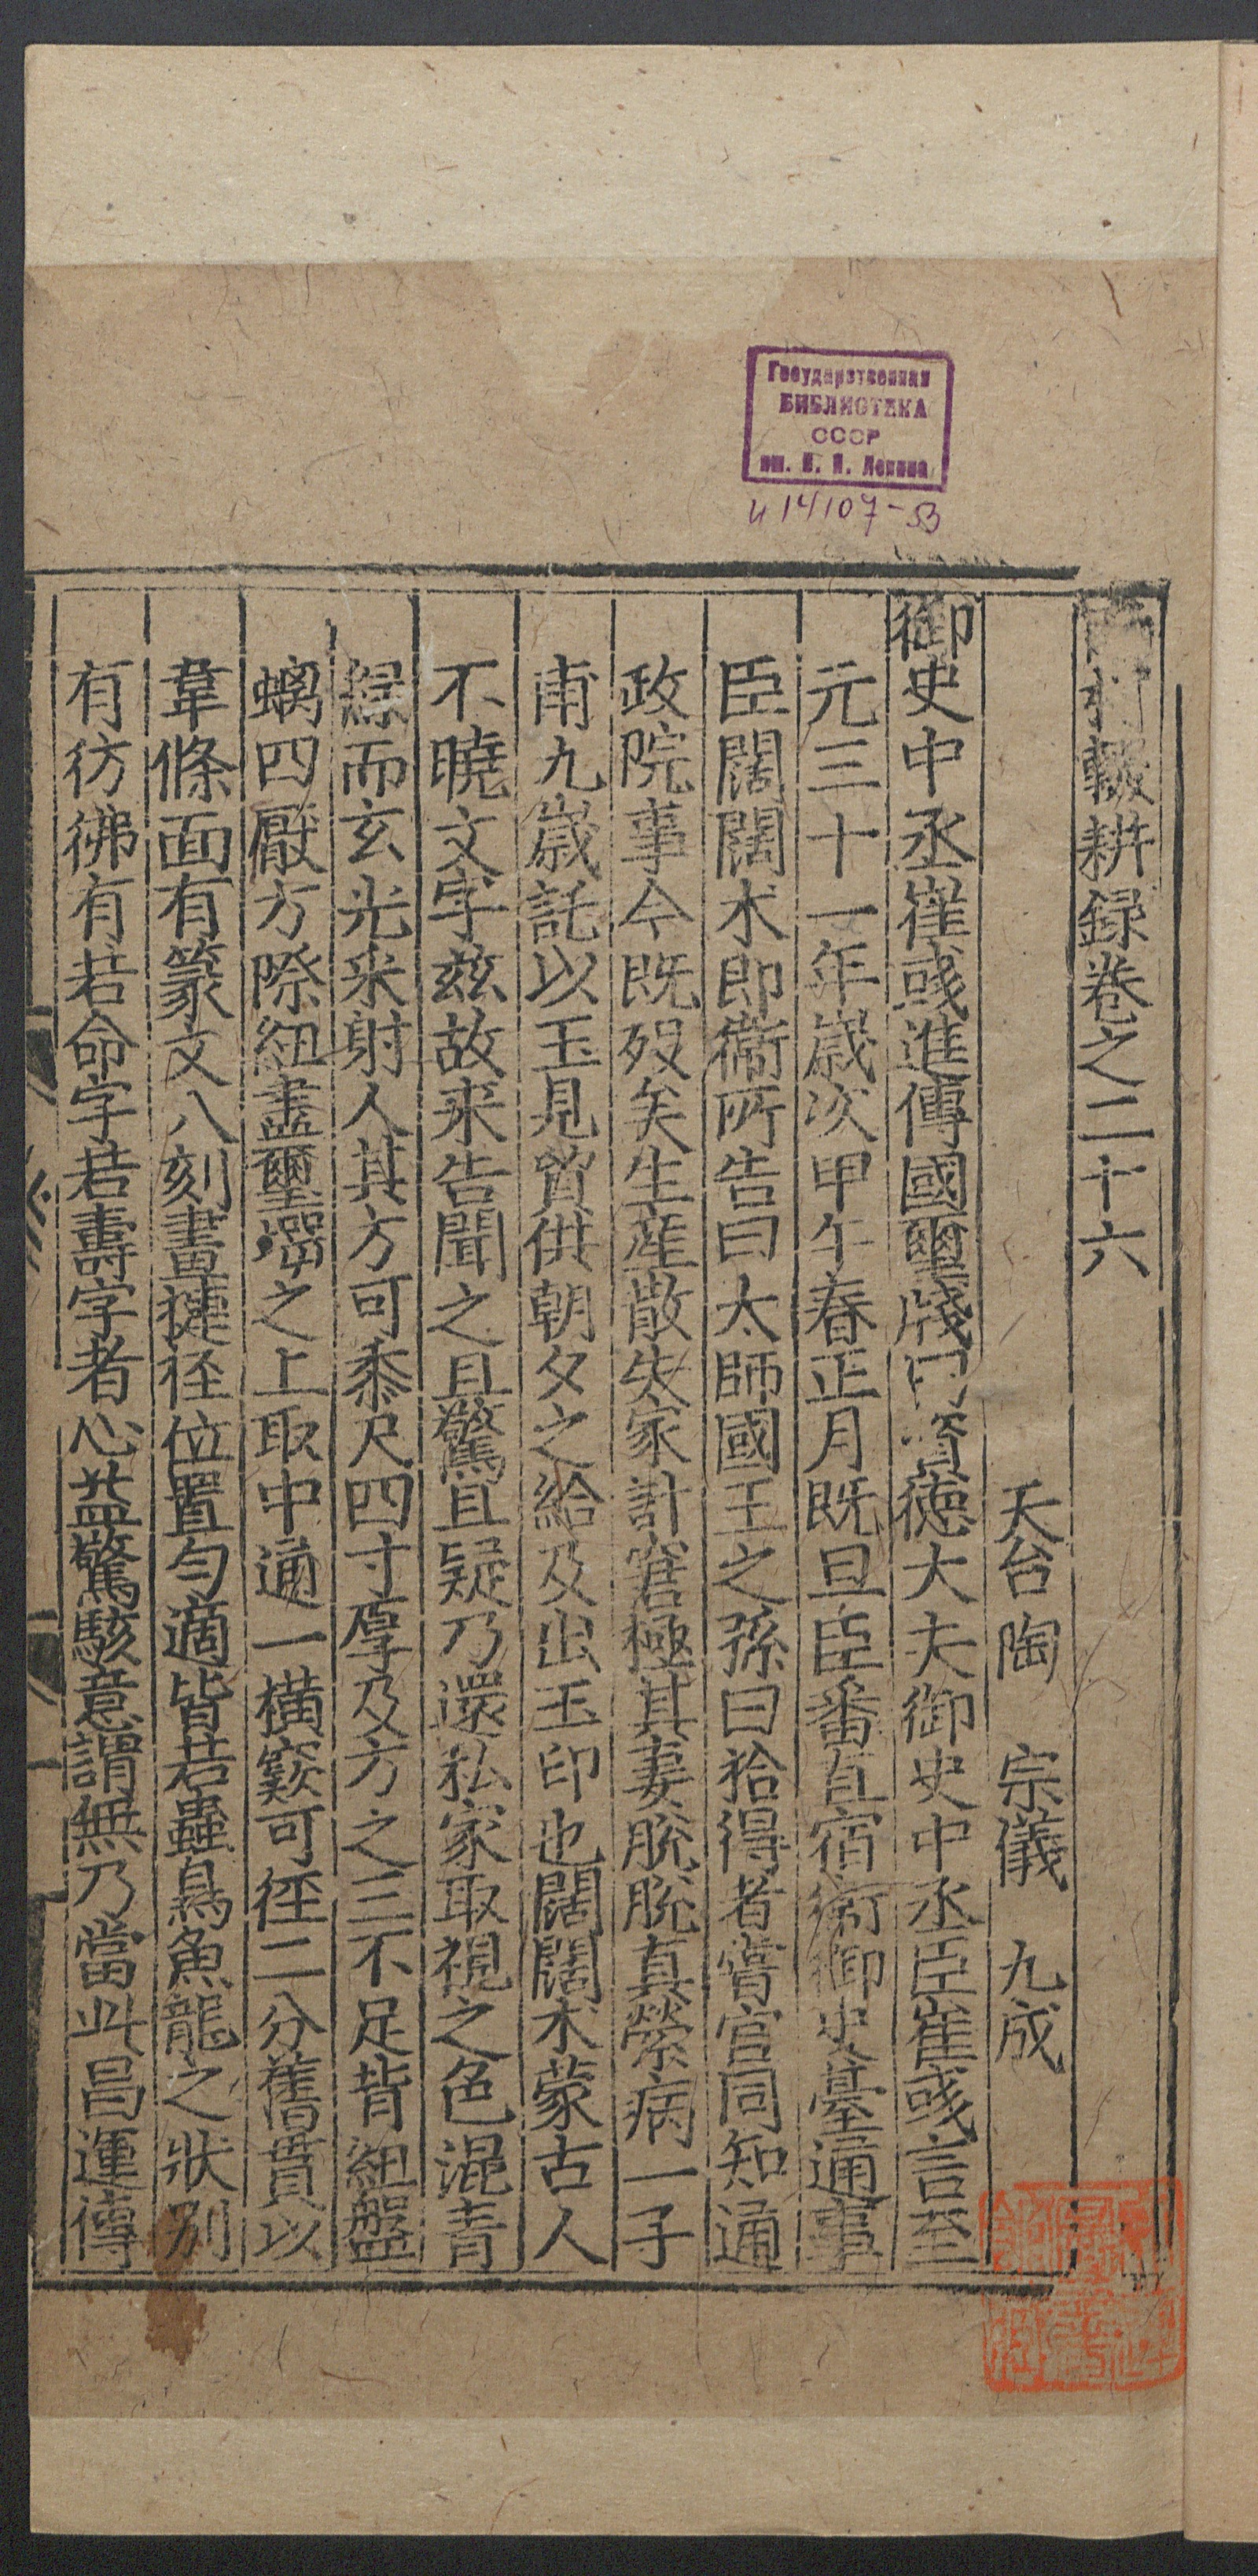 Государственная
БИБЛИОТЕКА
СССР
им. В. И. Ленина
и 14107-53
村輟耕録卷之二十六
天台陶 宗儀 九成
御史中丞崔彧進傳國璽牋曰資德大夫御史中丞臣崔彧言至
元三十一年歲次甲午春正月既旦臣番直宿衛御史臺通事
臣闊闊朮即衛所告曰太師國王之孫曰拾得者嘗官同知通
政院事今既殁矣生産散失家計窘極其妻脫脫真縈病一子
甫九歲託以玉見貿供朝夕之給及出玉印也闊闊朮蒙古人
不曉文字兹故来告聞之且驚且疑乃還私家取視之色混青
緑而玄光彩射人其方可黍尺四寸厚及方之三不足背紐盤
螭四厭方際紐盡璽堮之上取中通一横竅可徑二分舊貫以
韋條面有篆文八刻畫捷径位置匀適皆若蟲鳥魚龍之狀别
有彷彿有若命字若壽字者心益驚駭意謂無乃當此昌運傳